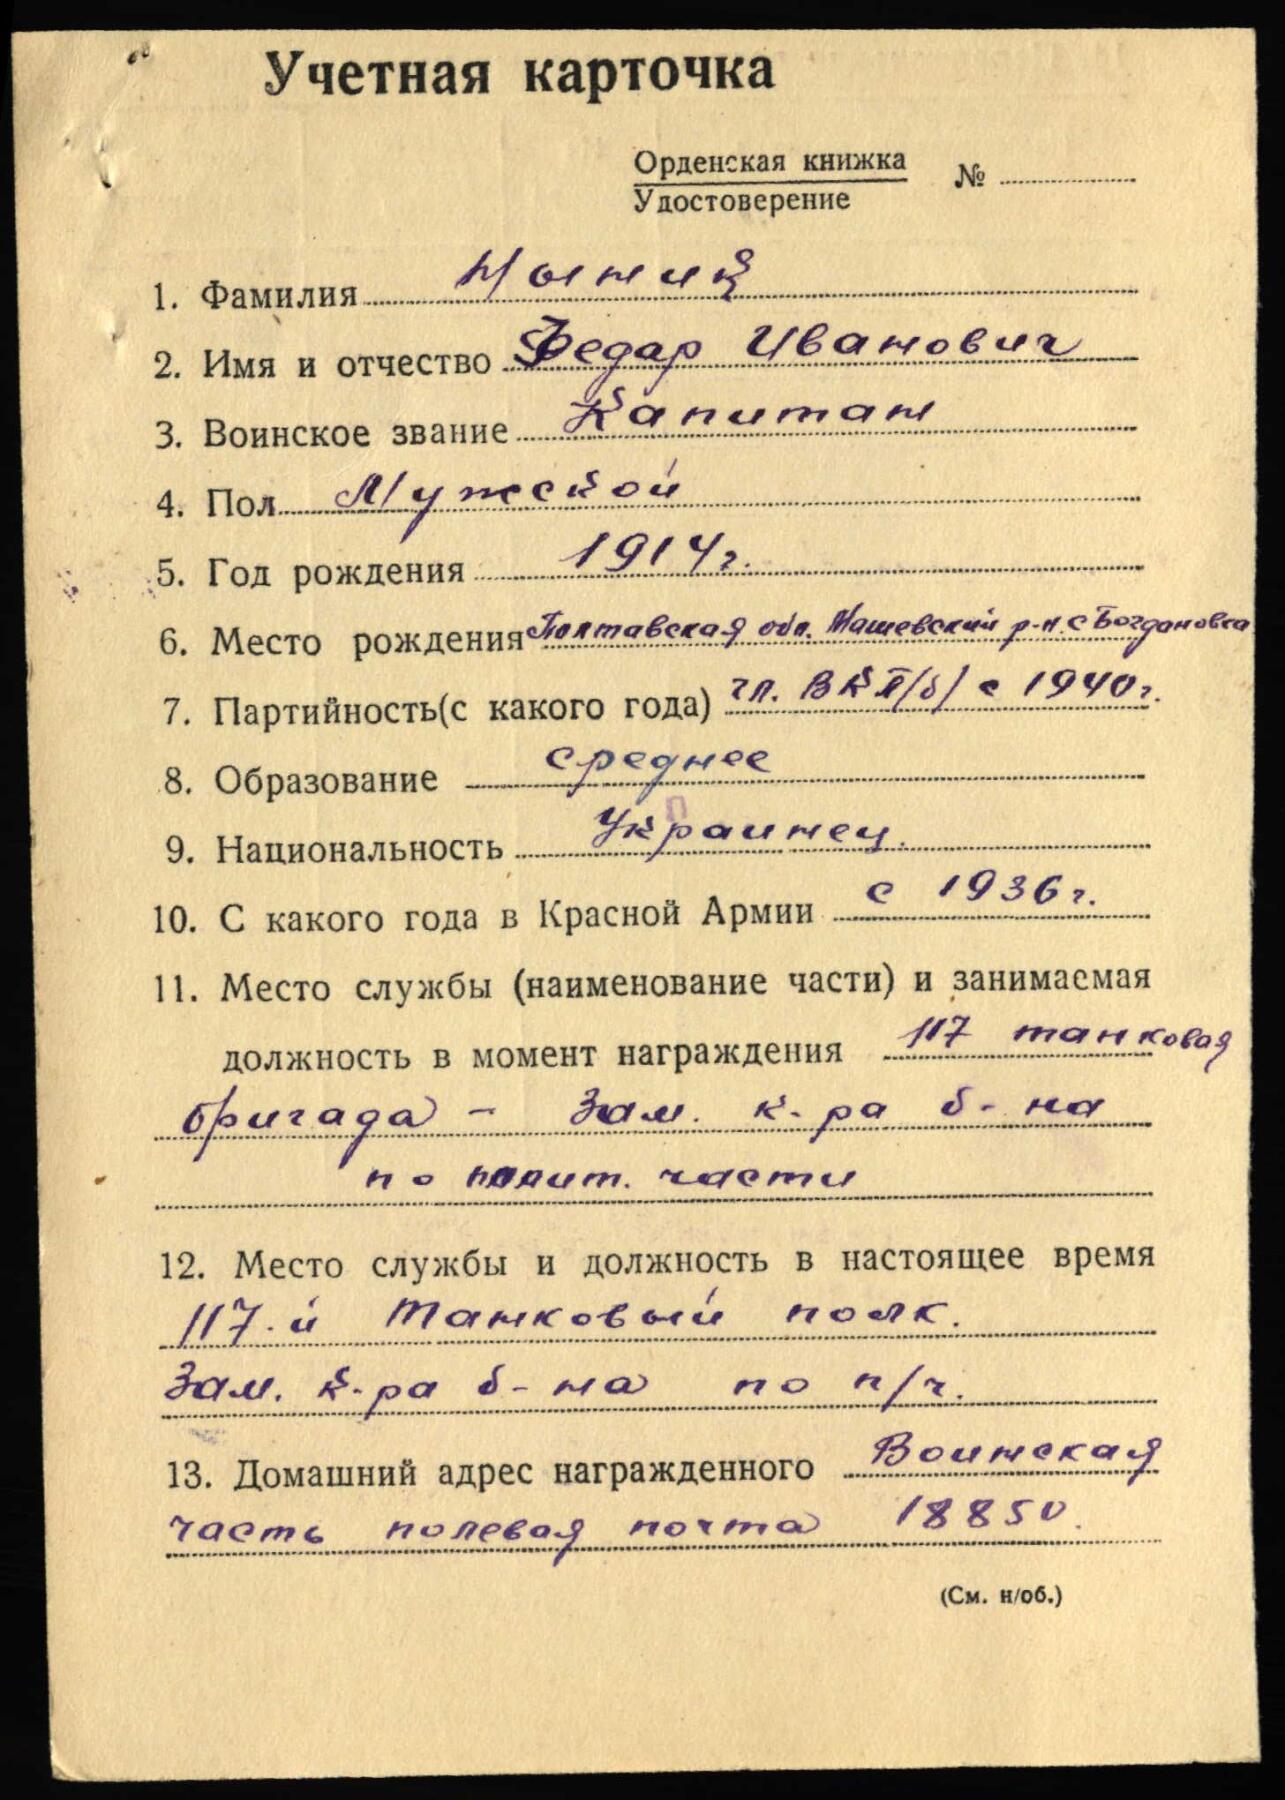 Учетная карточка
Орденская книжка
Удостоверение
№
1. Фамилия
2. Имя и отчество Федар Иванович
3. Воинское звание Капитан
4. Пол Мужской
5. Год рождения 1914 г.
6. Место рождения Полтавская обл. Машевский р-н. с Богдановка
7. Партийность(с какого года) чл. ВКП/б/ с 1940 г.
8. Образование среднее
9. Национальность Украинец.
10. С какого года в Красной Армии с 1936 г.
11. Место службы (наименование части) и занимаемая
должность в момент награждения 117 танковая
бригада - Зам. к-ра б-на
по полит. части
12. Место службы и должность в настоящее время
117-й Танковый полк.
Зам. к-ра б-на по п/ч.
13. Домашний адрес награжденного Воинская
часть полевая почта 18850.
(См. н/об.)